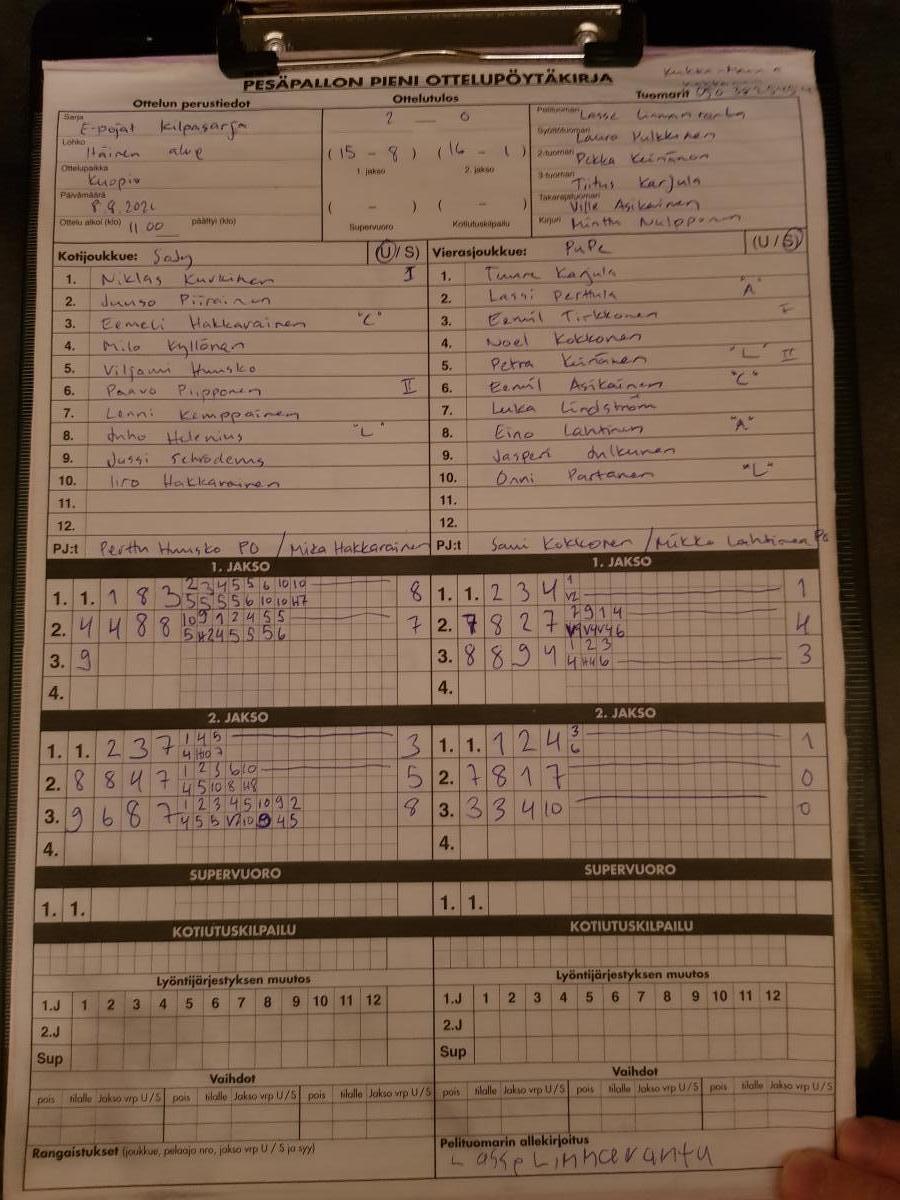 PESÄPALLON PIENI OTTELUPÖYTÄKIRJA
Ottelun perustiedot
Ottelutulos
Tuomarit
Sarja E-pojat kilpasarja
Lohko Itäinen alue
Ottelupaikka Kuopio
Päivämäärä
Ottelu alkoi (klo) 11 00 päättyi (klo)
2 — 0
(15 - 8) (16 - 1)
1. jakso 2. jakso
( - ) ( - )
Supervuoro Kotiutuskilpailu
Pelituomari Lasse Linnanranta
Syöttötuomari Laura Pulkkinen
2-tuomari Pekka Keinänen
3-tuomari Tiitus Karjula
Takarajatuomari Ville Asikainen
Kirjuri Minttu Nulpponen
Kotijoukkue: (U/S)
1. Niklas Kurkinen I
2. Juuso Piirainen
3. Eemeli Hakkarainen "C"
4. Milo Kyllönen
5. Viljami Huusko
6. Paavo Piipponen II
7. Lenni Kemppainen
8. Juho Helenius "L"
9. Jussi Schroderus
10. Iiro Hakkarainen
11.
12.
PJ:t Perttu Huusko PO / Mika Hakkarainen
Vierasjoukkue: PuPe (U/S)
1. Karjula
2. Lassi Perttula "A"
3. Eemil Tirkkonen I
4. Noel Kokkonen
5. Petra Keinänen "L" II
6. Eemil Asikainen "C"
7. Luka Lindström
8. Eino Lahtinen "A"
9. Jasperi Julkunen
10. Onni Partanen "L"
11.
12.
PJ:t Sami Kokkonen / Mikko Lahtinen Po
1. JAKSO
1. 1. 1 8 3 8
2. 4 4 8 8 7
3. 9
4.
1. JAKSO
1. 1. 2 3 4 1
2. 7 8 2 7 4
3. 8 8 9 4 3
4.
2. JAKSO
1. 1. 2 3 7 3
2. 8 8 4 7 5
3. 9 6 8 7 8
4.
2. JAKSO
1. 1. 1 2 4 1
2. 7 8 1 7 0
3. 3 3 4 10 0
4.
SUPERVUORO
1. 1.
SUPERVUORO
1. 1.
KOTIUTUSKILPAILU
KOTIUTUSKILPAILU
Lyöntijärjestyksen muutos
1.J 1 2 3 4 5 6 7 8 9 10 11 12
2.J
Sup
Lyöntijärjestyksen muutos
1.J 1 2 3 4 5 6 7 8 9 10 11 12
2.J
Sup
Vaihdot
pois tilalle Jakso vrp U/S pois tilalle Jakso vrp U/S pois tilalle Jakso vrp U/S
Vaihdot
pois tilalle Jakso vrp U/S pois tilalle Jakso vrp U/S pois tilalle Jakso vrp U/S
Rangaistukset (joukkue, pelaaja nro, jakso vrp U / S ja syy)
Pelituomarin allekirjoitus